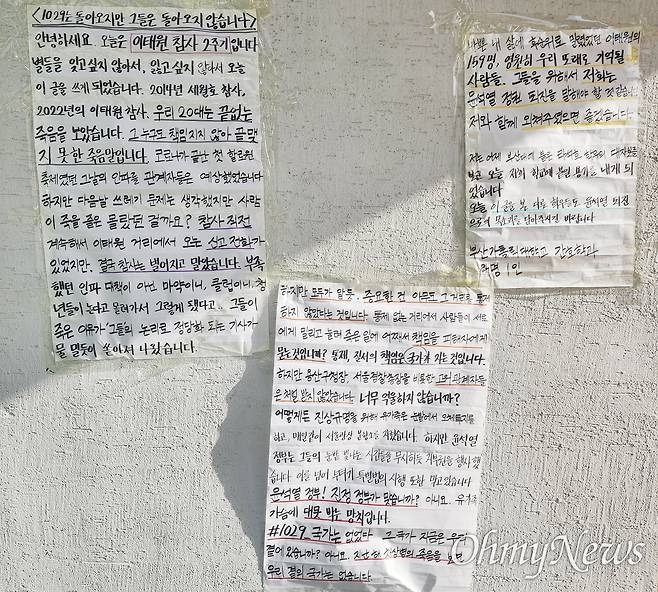 <1029는 돌아오지만 그들은 돌아 오지 않습니다>
안녕하세요. 오늘은 이태원 참사 2주기입니다
별들을 잊고싶지 않아서, 잃고 싶지 않아서 오늘
이 글을 쓰게 되었습니다. 2014년 세월호 참사,
2022년의 이태원 참사. 우리 20대는 끝없는
죽음을 보았습니다. 그 누구도 책임지지 않아 끝맺
지 못한 죽음말입니다. 코로나가 끝난 첫 할로윈
축제였던 그날의 인파를 관계자들은 예상했었습니다
하지만 다음날 쓰레기 문제는 생각했지만 사람
이 죽을 줄은 몰랐던 걸까요? 참사 직전
계속해서 이태원 거리에서 오는 신고 전화가
있었지만, 결국 참사는 벌어지고 말았습니다. 부족
했던 인파 대책이 아닌 마약이니, 클럽이니, 청
년들이 논다고 몰려가서 그렇게 됐다고.. 그들이
죽은 이유가 그들의 논리로 정당화 되는 기사가
물 밀듯이 쏟아져 나왔습니다.
하지만 모두가 알듯, 중요한 건 아무도 그 거리를 통제
하지 않았다는 것입니다. 통제 없는 거리에서 사람들이 서로
에게 밀리고 눌려 죽은 일에 어째서 책임을 피해자에게
묻는것입니까? 통제, 질서의 책임은 국가가 지는 것입니다.
하지만 용산구청장, 서울경찰청장을 비롯한 고위 관계자들
은 처벌 받지 않았습니다. 너무 억울하지 않습니까?
어떻게든 진상규명을 위해 유가족은 눈밭에서 오체투지를
하고, 매일같이 시청광장 분향소를 지켰습니다. 하지만 윤석열
정부는 그들의 시간들을 무시하듯 거부권을 행사했
습니다. 이를 넘어 특별법의 시행 또한 막고있습니다
윤석열 정부! 진정 정부가 맞습니까? 아니요. 유가족
가슴에 대못 박는 망치입니다.
#1029 국가는 없었다. 그 국가 지금은 우리
곁에 있습니까? 아니요. 죽음을 보면
우리 곁의 국가는 없습니다.
바쁜 내 삶에 후순위로 밀렸었던 이태원의
159명. 영원히 우리 또래로 기억될
사람들. 그들을 위해서 저희는
윤석열 정권 퇴진을 말해야 할 것 같습니다
저와 함께 외쳐주셨으면 좋겠습니다.
저는 어제 부산대에 붙은 대자보를
보고 오늘 저희 학교에 붙일 용기를 내게 되
었습니다
오늘 이 글을 본 여러 학우들도 윤석열 퇴진
으로 바랍니다
부산가톨릭대학교 간호학과
익명 1인
OhmyNews